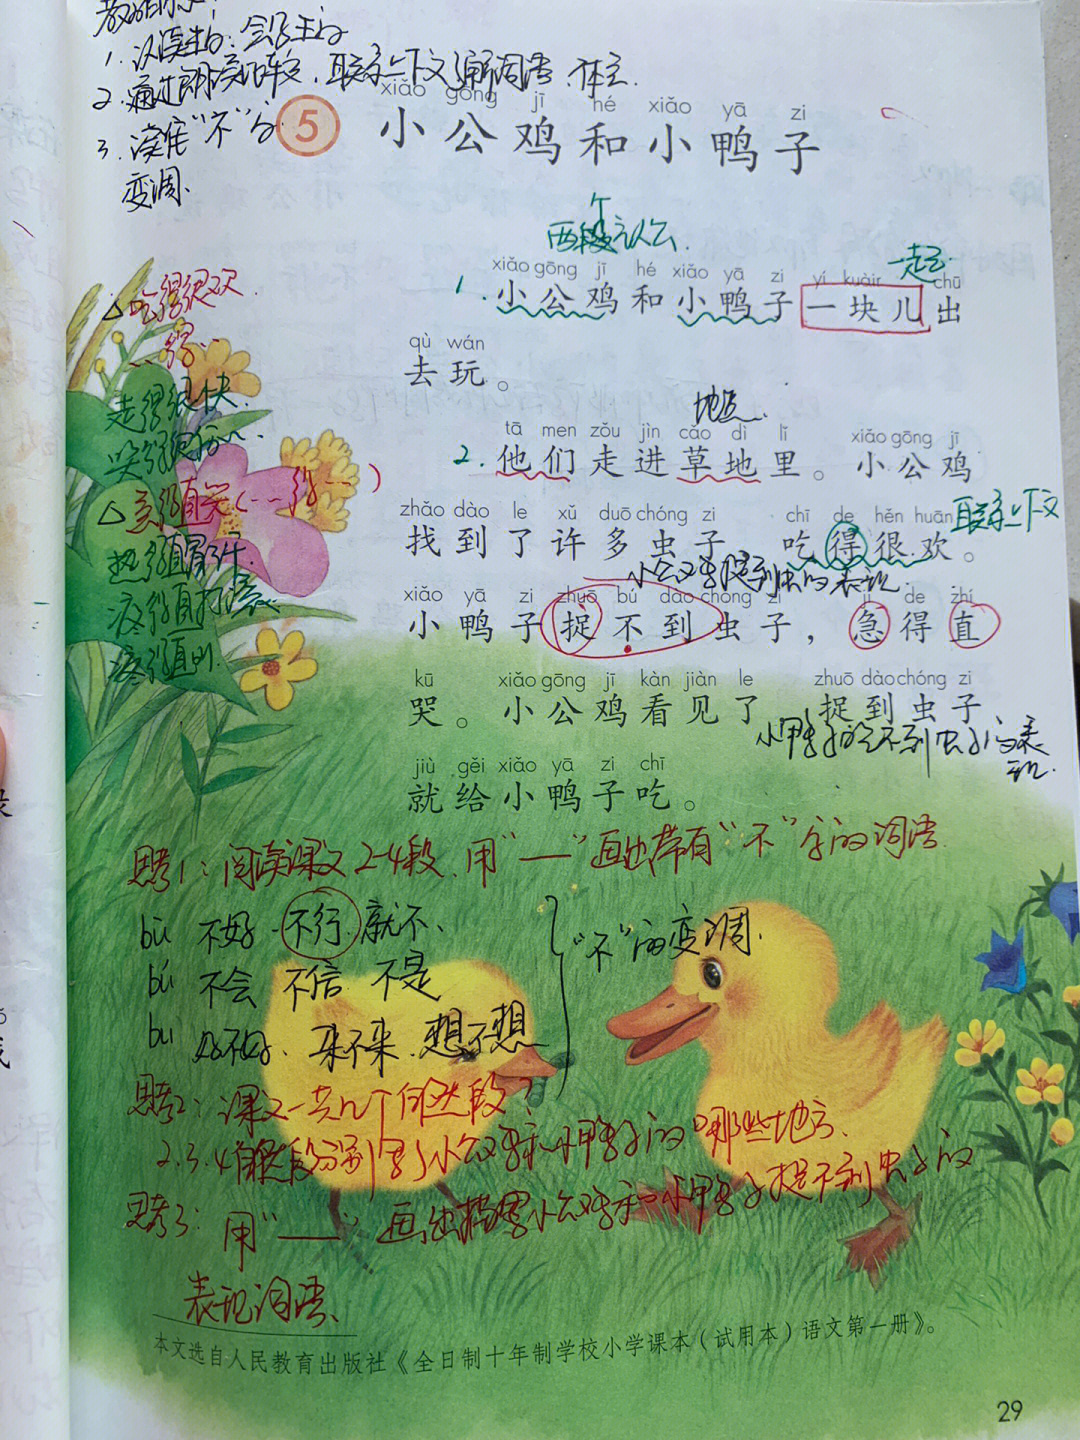 1. 汉字
2. 通过朗读课文，联系上下文了解词语
3. 读准“不”的
变调.
xiǎo gōng jī hé xiǎo yā zi
5 小公鸡和小鸭子
两个
一起
xiǎo gōng jī hé xiǎo yā zi yí kuàir chū
1. 小公鸡和小鸭子一块儿出
qù wán
去玩。
地点
tā men zǒu jìn cǎo dì lǐ xiǎo gōng jī
2. 他们走进草地里。小公鸡
联系上下文
zhǎo dào le xǔ duō chóng zi chī de hěn huān
找到了许多虫子 吃得很欢。
小公鸡捉到虫的表现
xiǎo yā zi zhuō bú dào chóng zi jí de zhí
小鸭子捉不到虫子，急得直
kū xiǎo gōng jī kàn jiàn le zhuō dào chóng zi
哭。小公鸡看见了 捉到虫子
小鸭子捉不到虫子的表
现.
jiù gěi xiǎo yā zi chī
就给小鸭子吃。
△吃得很欢
走得很快.
△急得直哭
思考1：阅读课文2-4段，用“——”画出带有“不”字的词语.
bù 不好、不行、就不、
bú 不会 不信 不是
bu 好不好、来不来、想不想
“不”的变调.
思考2：课文一共几个自然段？
2.3.4自然段分别写了小公鸡和小鸭子的哪些地方.
思考3：用“——”画出描写小公鸡和小鸭子捉不到虫子的
表现词语、
本文选自人民教育出版社《全日制十年制学校小学课本（试用本）语文第一册》。
29